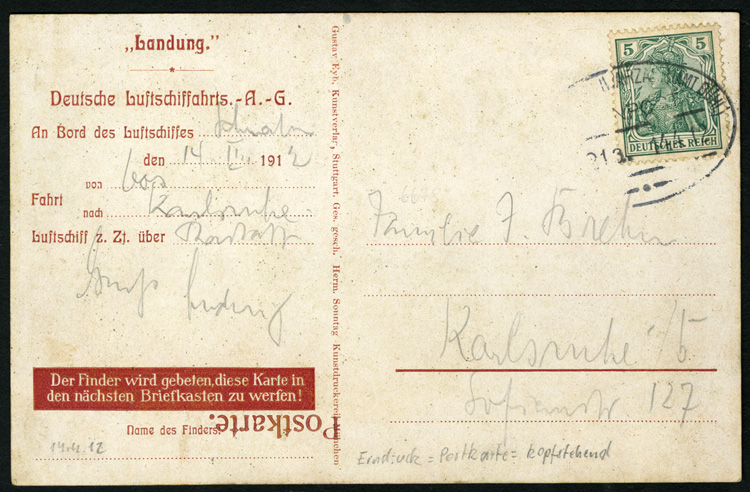 „Landung."
Deutsche Luftschiffahrts.-A.-G.
An Bord des Luftschiffes Schwaben
den 14 IV. 1912
von Oos
Fahrt
nach Karlsruhe
Luftschiff z. Zt. über Rastatt
Gruß Ludwig
Der Finder wird gebeten, diese Karte in
den nächsten Briefkasten zu werfen!
Name des Finders:
Postkarte.
14.4.12
Gustav Eyb, Kunstverlag, Stuttgart. Ges. gesch. Herm. Sonntag Kunstdruckerei München
5 5
DEUTSCHES REICH
Familie F. Brehm
Karlsruhe i/b
Sofienstr 127
Erndruck = Postkarte = kopfstehend